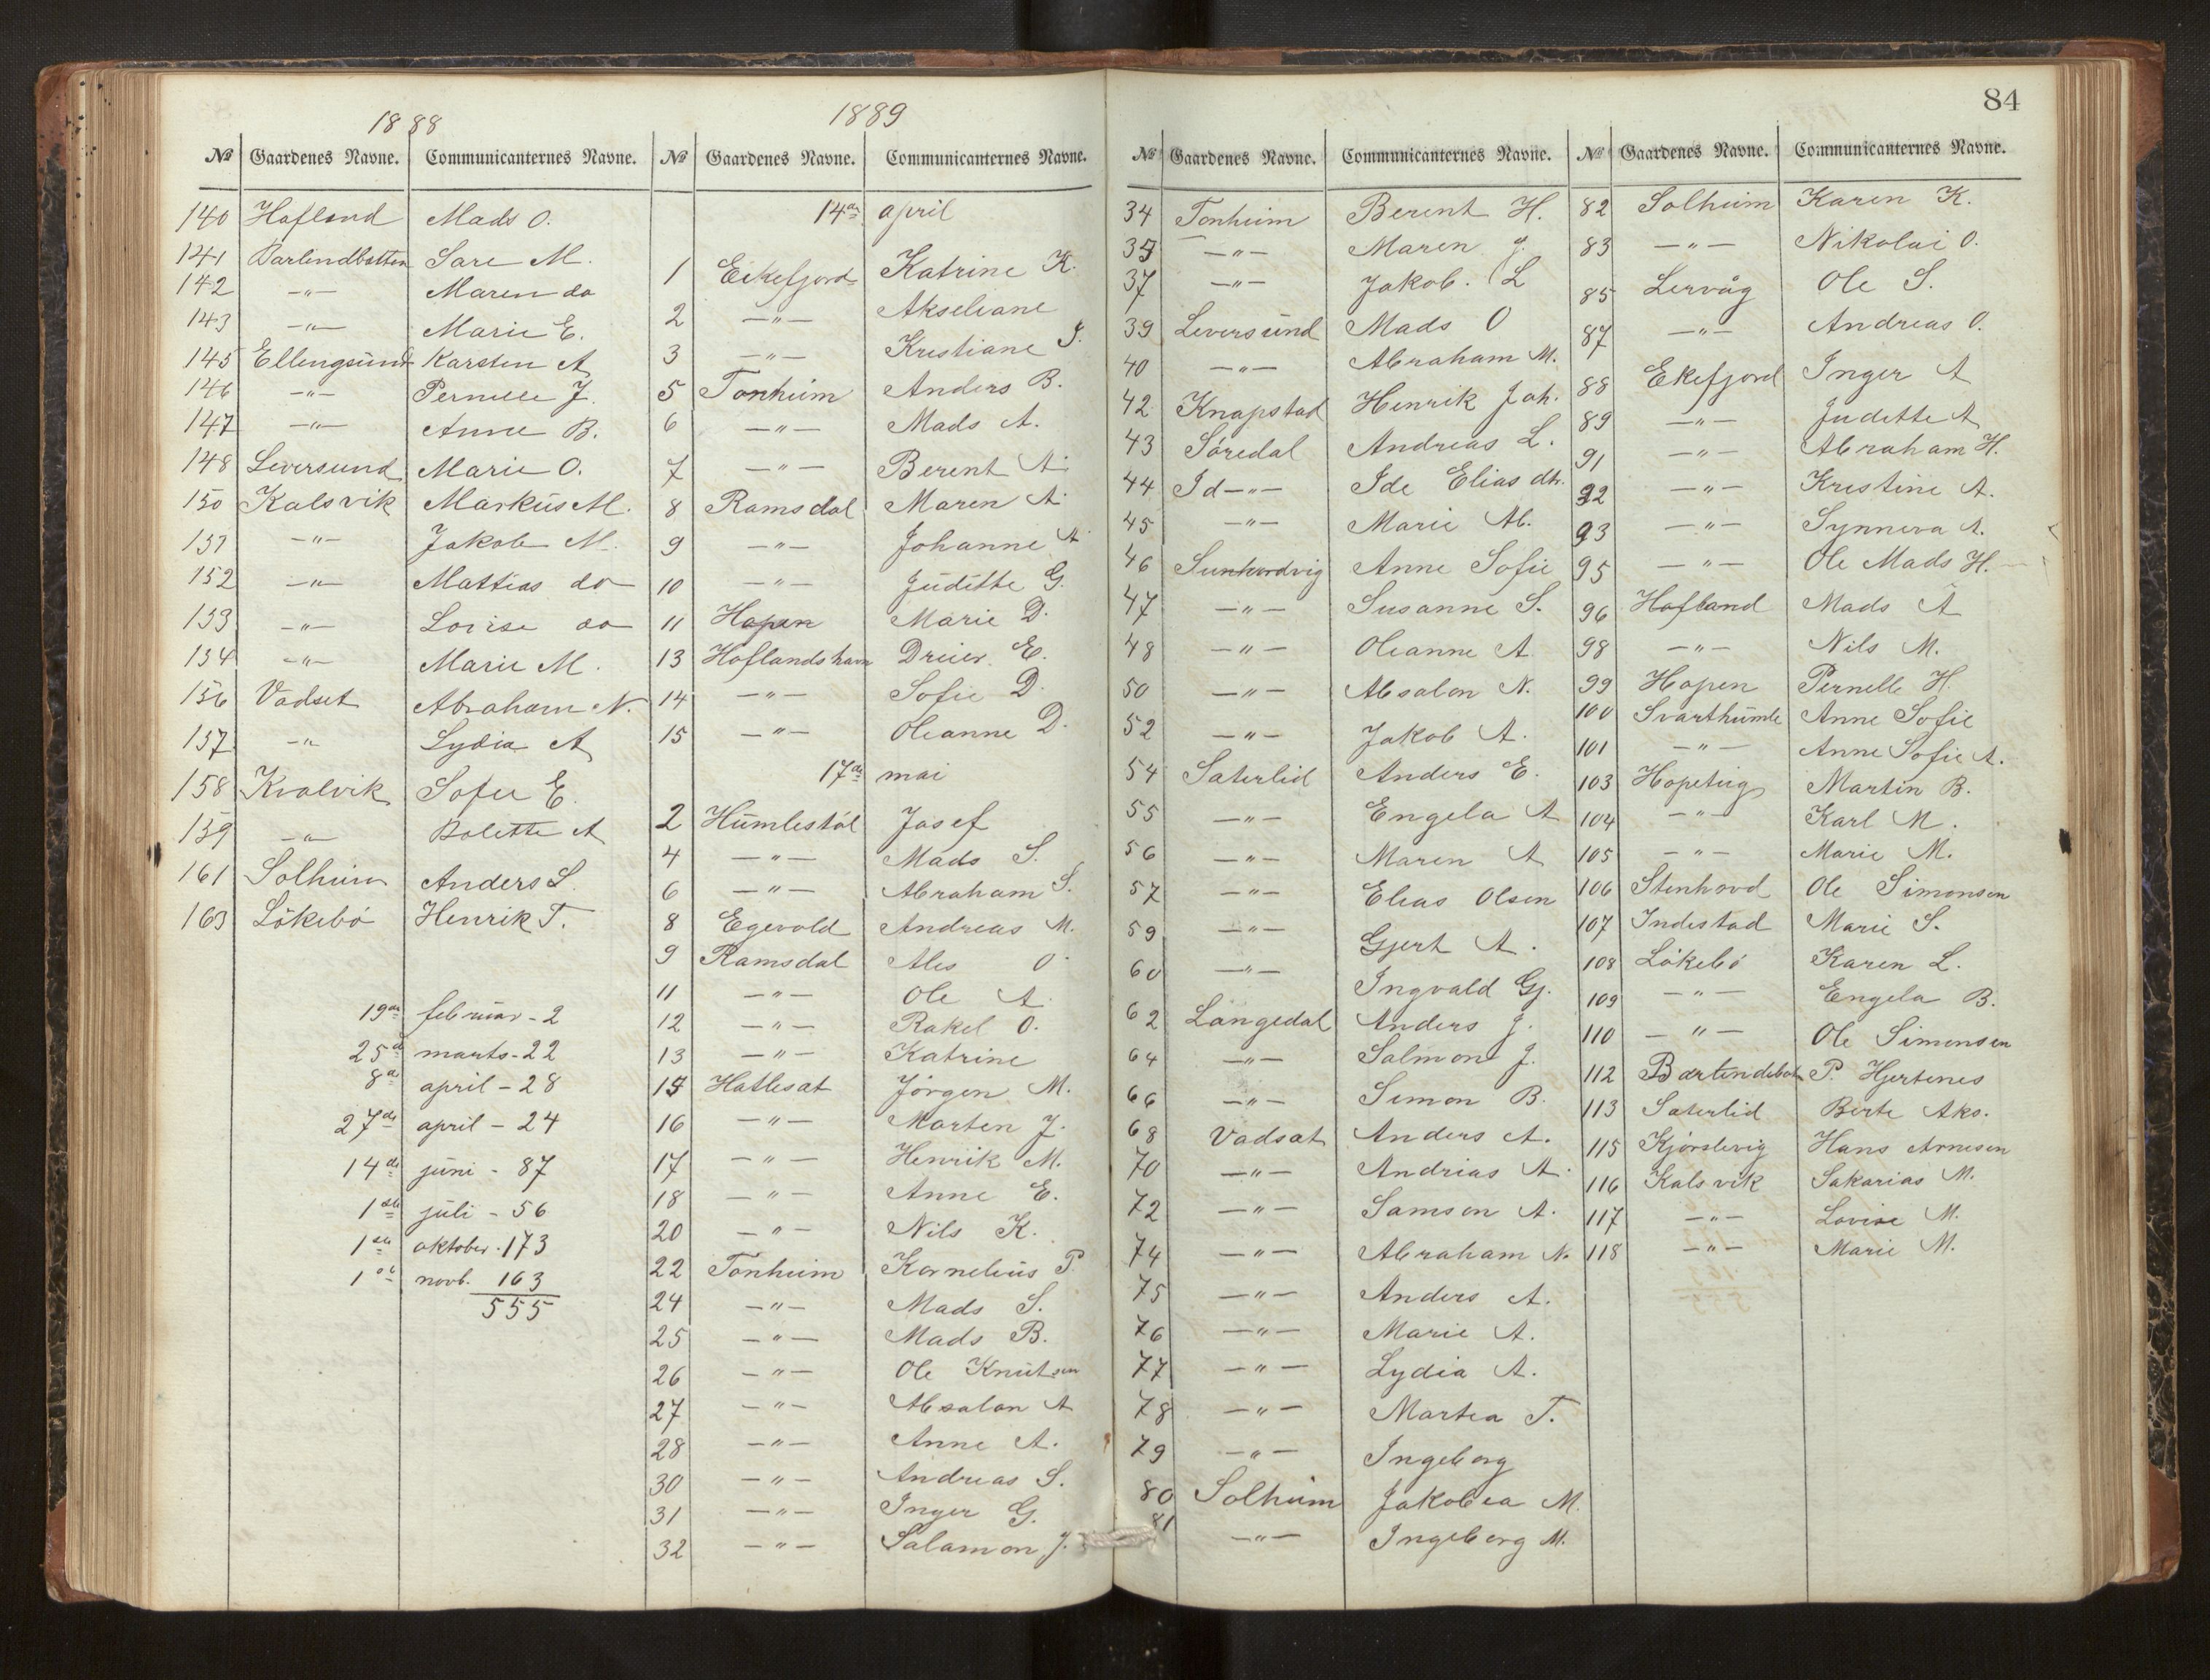 1888
№ Gaardenes Navne. Communicanternes Navne.
140 Hafland Mads O.
141 Barlindbotten Sare M.
142 —"— Maren do
143 —"— Marie E.
145 Ellingsund Karsten A
146 —"— Pernelle J.
147 —"— Anne B.
148 Leversund Marie O.
150 Kalsvik Markus M.
151 —"— Jakob M.
152 —"— Mattias do
153 —"— Lovise do
154 —"— Marie M.
156 Vadset Abraham N.
157 —"— Lydia A
158 Kvalvik Sofie E.
159 —"— Bolette A
161 Solheim Anders L.
163 Lökebö Henrik T.
19de februar - 2
25de marts - 22
8de april - 28
27de april - 24
14de juni - 87
1ste juli - 56
1ste oktober - 173
1ste novb. 163
555
1889
№ Gaardenes Navne. Communicanternes Navne.
14de april
1 Eikefjord Katrine K.
2 —"— Akseliane
3 —"— Kristiane J.
5 Tonheim Anders B.
6 —"— Mads A.
7 —"— Berent A.
8 Ramsdal Maren A.
9 —"— Johanne A
10 —"— Juditte G.
11 Hopen Marie D.
13 Haflandshavn Dreier E.
14 —"— Sofie D.
15 —"— Oleanne D.
17de mai
2 Humlestöl Josef
4 —"— Mads S.
6 —"— Abraham S.
8 Egevold Andreas M.
9 Ramsdal Alis O.
11 —"— Ole A.
12 —"— Rakel O.
13 —"— Katrine
15 Hatlesat Jörgen M.
16 —"— Morten J.
17 —"— Henrik M.
18 —"— Anne E.
20 —"— Nils K.
22 Tonheim Kornelius P.
24 —"— Mads S.
25 —"— Mads B.
26 —"— Ole Knutsen
27 —"— Absalon A
28 —"— Anne A.
30 —"— Andreas S.
31 —"— Inger G.
32 —"— Salamon J.
84
№ Gaardenes Navne. Communicanternes Navne.
34 Tonheim Berent H.
35 —"— Maren J.
37 —"— Jakob. L
39 Leversund Mads O
40 —"— Abraham M.
42 Knapstad Henrik Joh.
43 Söredal Andreas L.
44 Id —"— Ide Elias dtr.
45 —"— Marie Ab.
46 Anne Sofie
47 —"— Susanne S.
48 —"— Oleanne A
50 —"— Absalon N.
52 —"— Jakob A.
54 Saterlid Anders E.
55 —"— Engela A
56 —"— Maren A
57 —"— Elias Olsen
59 —"— Gjert A.
60 —"— Ingvald Gj.
62 Langedal Anders J.
64 —"— Salmon J.
66 —"— Simon B.
68 Vadsat Anders A.
70 —"— Andrias A.
72 —"— Samson A.
74 —"— Abraham N.
75 —"— Anders A.
76 —"— Marie A.
77 —"— Lydia A.
78 —"— Martea T.
79 —"— Ingeborg
80 Solheim Jakobea M.
81 —"— Ingeborg M.
№ Gaardenes Navne. Communicanternes Navne.
82 Solheim Karen K.
83 —"— Nikolai O.
85 Lervåg Ole S.
87 —"— Andreas O.
88 Ekefjord Inger A
89 —"— Juditte A
91 —"— Abraham H.
92 —"— Kristine A.
93 —"— Synneva A.
95 —"— Ole Mads H.
96 Hafland Mads A
98 —"— Nils M.
99 Hopen Pernelle H.
100 Svarthumle Anne Sofie
101 —"— Anne Sofie A.
103 Hopeteig Martin B.
104 —"— Karl M.
105 —"— Marie M.
106 Stenhovd Ole Simonsen
107 Indestad Marie S.
108 Lökebö Karen L.
109 —"— Engela B.
110 —"— Ole Simonsen
112 Barlindebot P. Hjertenes
113 Saterlid Berte Aks.
115 Kjörslevig Hans Arnesen
116 Kalsvik Sakarias M.
117 —"— Lovise M.
118 —"— Marie M.